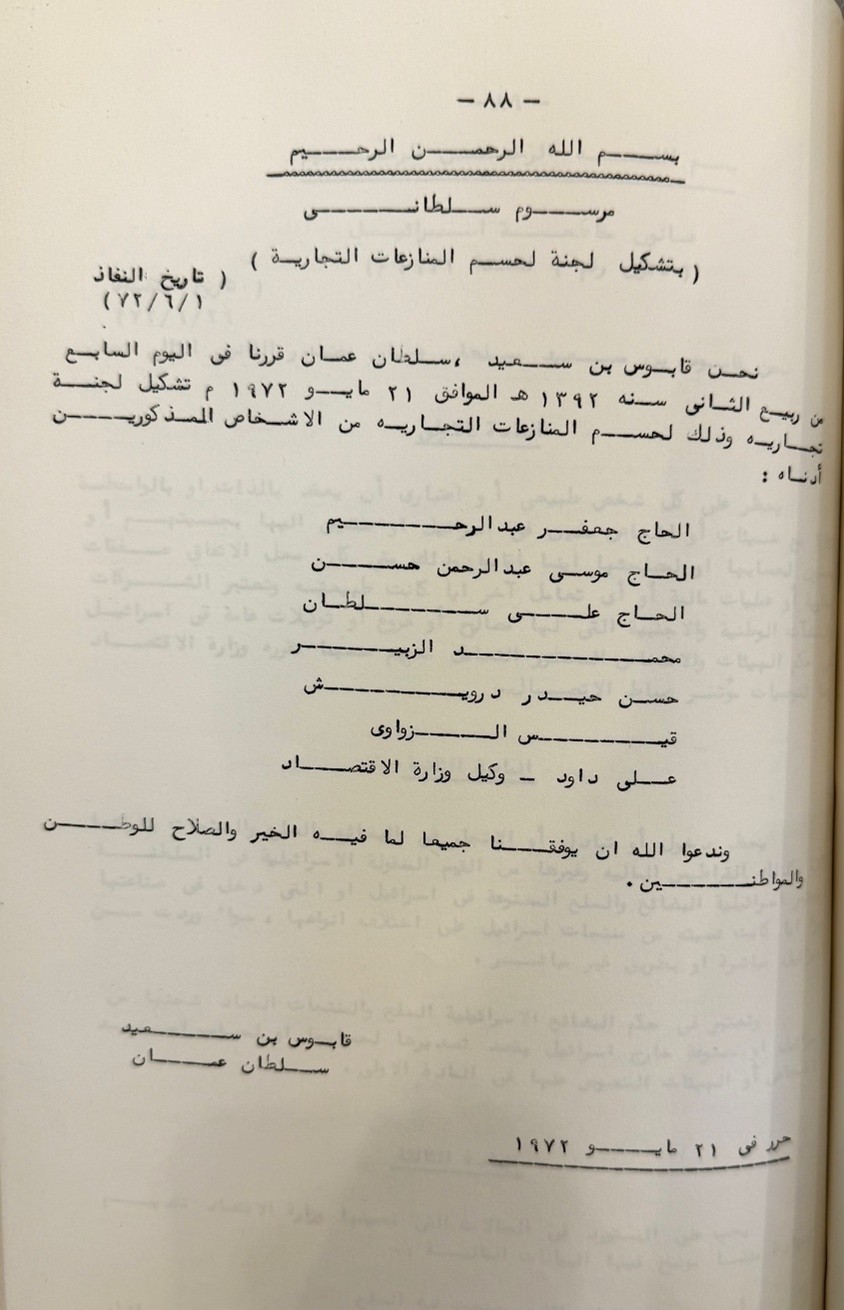 - ٨٨ -
بسم الله الرحمن الرحيم
مرسوم سلطانى
( بتشكيل لجنة لحسم المنازعات التجارية )
( تاريخ النفاذ
٧٢/٦/١ )
نحن قابوس بن سعيد ، سلطان عمان قررنا فى اليوم السابع
من ربيع الثانى سنه ١٣٩٢ هـ الموافق ٢١ مايو ١٩٧٢ م تشكيل لجنة
تجاريه وذلك لحسم المنازعات التجاريه من الاشخاص المذكورين
أدناه :
الحاج جعفر عبدالرحيم
الحاج موسى عبدالرحمن حسن
الحاج على سلطان
محمد الزبير
حسن حيدر درويش
قيس الزواوى
على داود - وكيل وزارة الاقتصاد
وندعوا الله ان يوفقنا جميعا لما فيه الخير والصلاح للوطن
والمواطنين .
قابوس بن سعيد
سلطان عمان
حرر فى ٢١ مايو ١٩٧٢